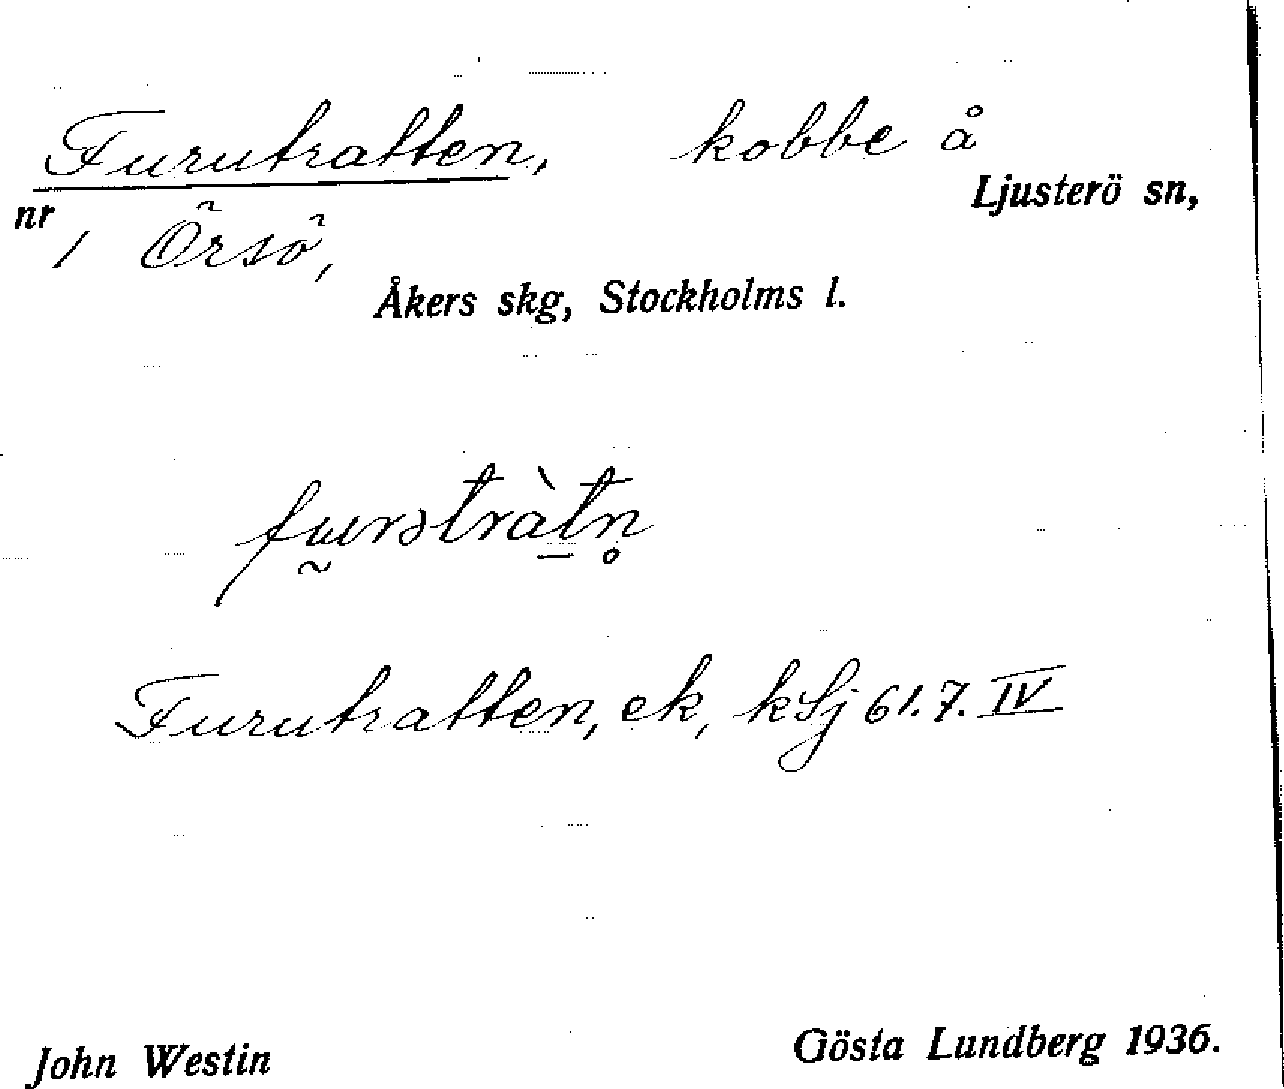 Furutratten, kobbe å
Ljusterö sn,
nr
1 Örsö,
Åkers skg, Stockholms l.
furətràtn̥
Furutratten, ek, kSj 61.7. IV
John Westin
Gösta Lundberg 1936.